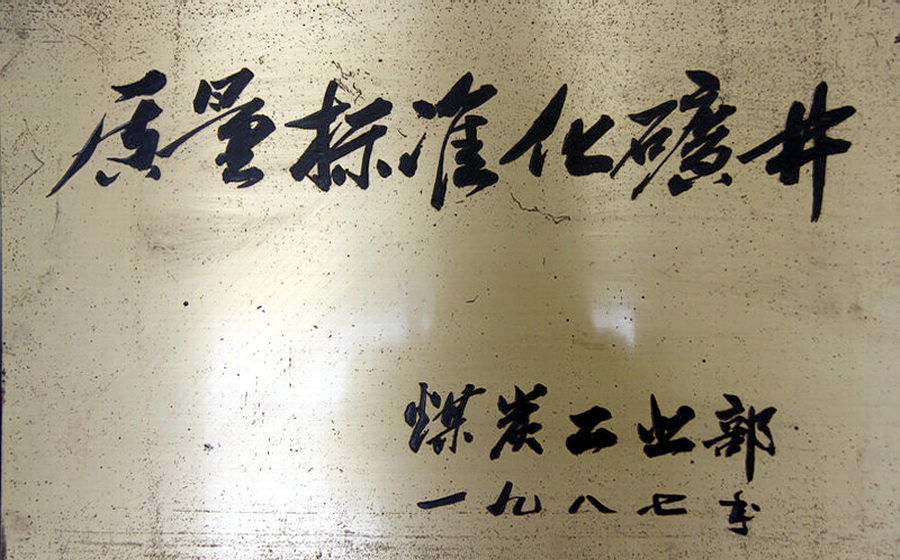 质量标准化礦井
煤炭工业部
一九八七年